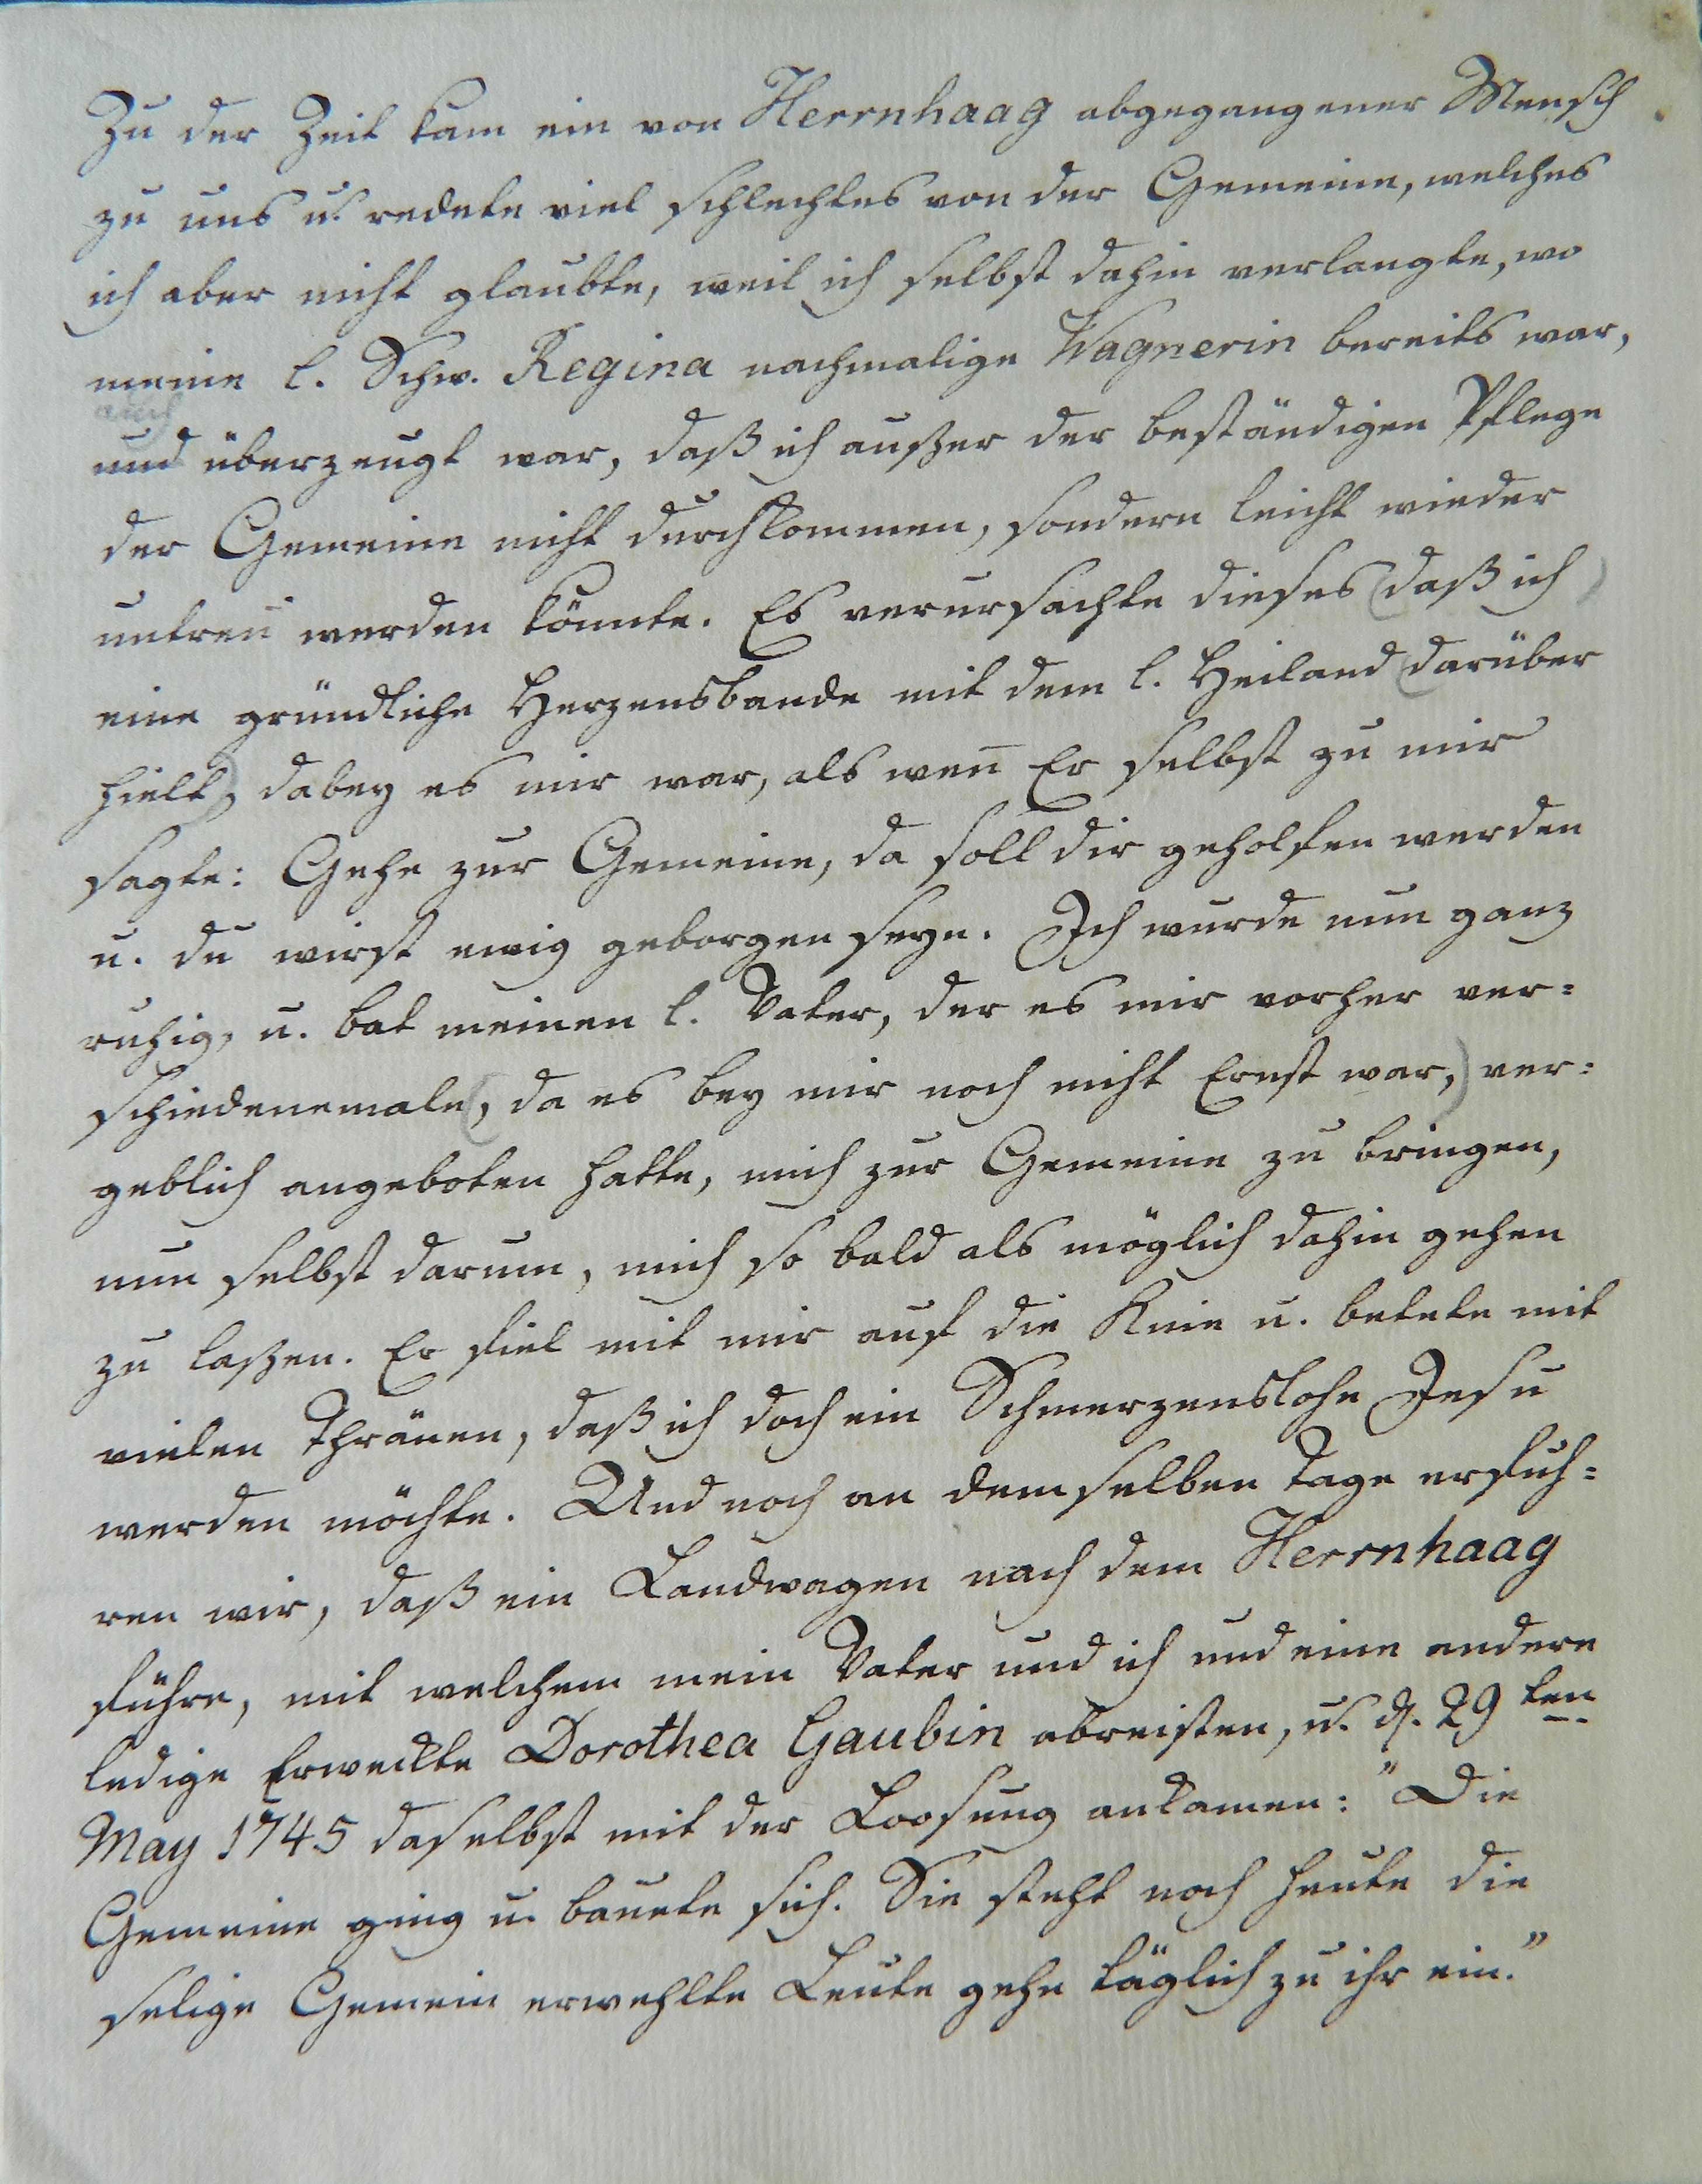 Zu der Zeit kam ein von Herrnhaag abgegangener Mensch
zu uns u. redete viel schlechtes von der Gemeine, welches
ich aber nicht glaubte, weil ich selbst dahin verlangte, wo
meine l. Schw. Regina nachmalige Wagnerin bereits war,
auch
und überzeugt war, daß ich außer der beständigen Pflege
der Gemeine nicht durchkommen, sondern leicht wieder
untreu werden könnte. Es verursachte dieses (daß ich)
eine gründliche Herzensbande mit dem l. Heiland (darüber
hielt), dabey es mir war, als weñ Er selbst zu mir
sagte: Gehe zur Gemeine, da soll dir geholfen werden
u. du wirst ewig geborgen seyn. Ich wurde nun ganz
ruhig, u. bat meinen l. Vater, der es mir vorher ver=
schiedenemale (, da es bey mir noch nicht Ernst war,) ver=
geblich angeboten hatte, mich zur Gemeine zu bringen,
nun selbst darum, mich so bald als möglich dahin gehen
zu laßen. Er fiel mit mir auf die Knie u. betete mit
vielen Thränen, daß ich doch ein Schmerzenslohn Jesu
werden möchte. Und noch an demselben Tage erfuh=
ren wir, daß ein Landwagen nach dem Herrnhaag
führe, mit welchem mein Vater und ich und eine andere
ledige Erweckte Dorothea Gaubin abreisten, u. d. 29ten
May 1745 daselbst mit der Loosung ankamen: "Die
Gemeine ging u. bauete sich. Sie steht noch heute die
selige Gemein erwehlte Leute gehn täglich zu ihr ein."